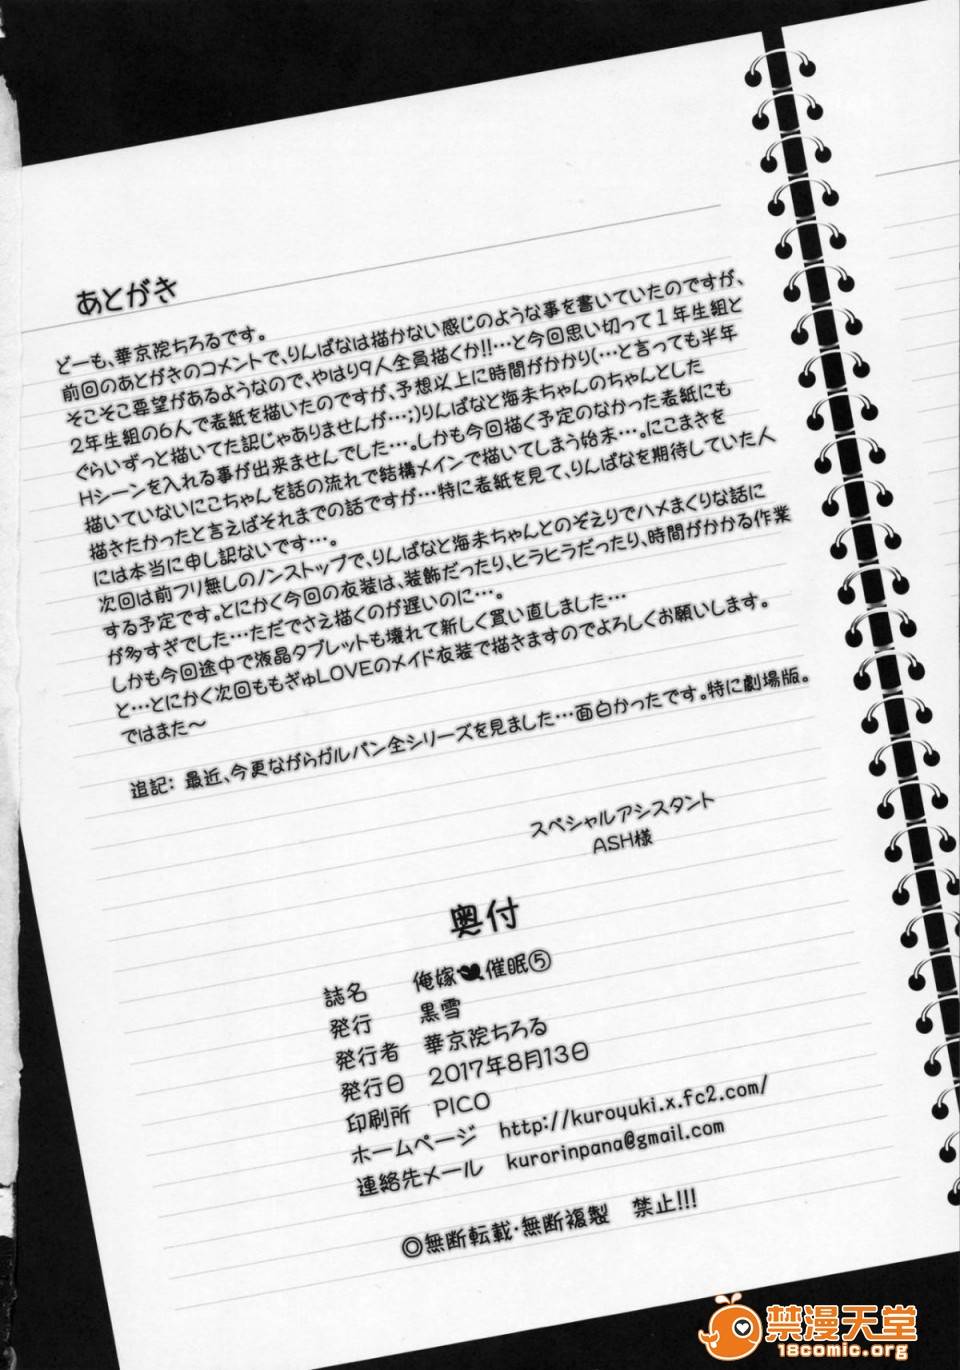 あとがき
どーも、華京院ちろるです。
前回のあとがきのコメントで、りんぱなは描かない感じのような事を書いていたのですが、
そこそこ要望があるようなので、やはり9人全員描くか!!…と今回思い切って1年生組と
2年生組の6人で表紙を描いたのですが、予想以上に時間がかかり(…と言っても半年
ぐらいずっと描いてた訳じゃありませんが…;)りんぱなと海未ちゃんのちゃんとした
Hシーンを入れる事が出来ませんでした…。しかも今回描く予定のなかった表紙にも
描いていないにこちゃんを話の流れで結構メインで描いてしまう始末…。にこまきを
描きたかったと言えばそれまでの話ですが…特に表紙を見て、りんぱなを期待していた人
には本当に申し訳ないです…。
次回は前フリ無しのノンストップで、りんぱなと海未ちゃんとのぞえりでハメまくりな話に
する予定です。とにかく今回の衣装は、装飾だったり、ヒラヒラだったり、時間がかかる作業
が多すぎでした…ただでさえ描くのが遅いのに…。
しかも今回途中で液晶タブレットも壊れて新しく買い直しました…
と…とにかく次回ももぎゅLOVEのメイド衣装で描きますのでよろしくお願いします。
ではまた～
追記: 最近、今更ながらガルパン全シリーズを見ました…面白かったです。特に劇場版。
スペシャルアシスタント
ASH様
奥付
誌名 俺嫁催眠⑤
発行 黒雪
発行者 華京院ちろる
発行日 2017年8月13日
印刷所 PICO
ホームページ http://kuroyuki.x.fc2.com/
連絡先メール kurorinpana@gmail.com
◎無断転載・無断複製 禁止!!!
禁漫天堂
18comic.org